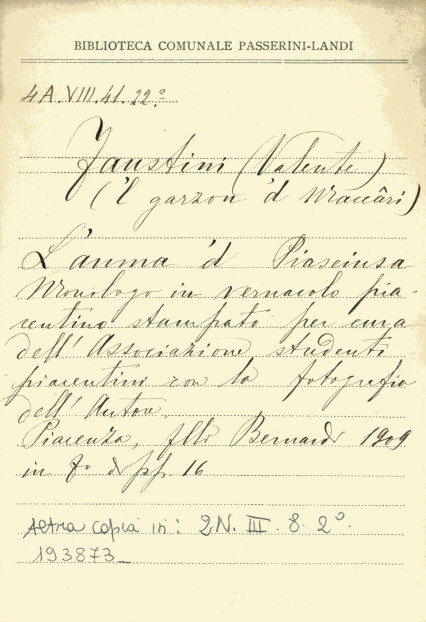 BIBLIOTECA COMUNALE PASSERINI-LANDI
4A.VIII.41.22.º
Faustini (Valente)
('l garzon 'd Maccâri)
L'anma 'd Piaseinsa
Monologo in vernacolo pia-
centino stampato per cura
dell'Associazione studenti
piacentini con la fotografia
dell'Autore.
Piacenza, flli Bernardi 1909
in 8º di pp. 16
Altra copia in: 2N. III. 8. 2º.
193873_